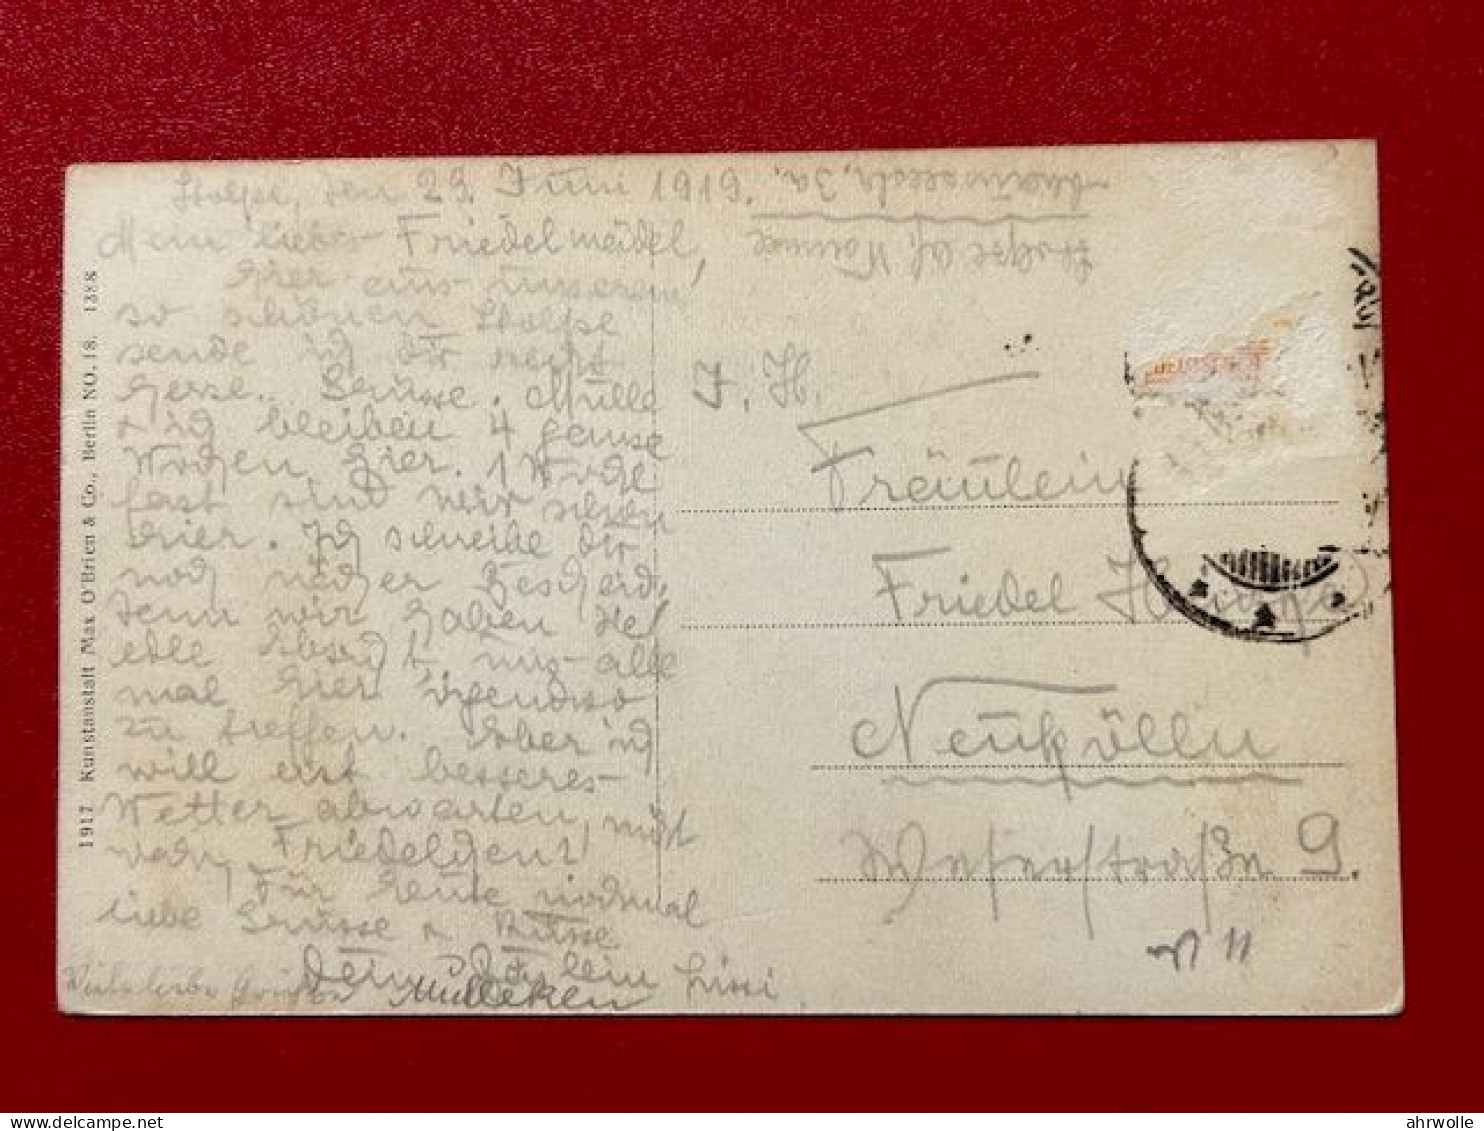 Stolpe, den 29. Juni 1919.
Mein liebes Friedelmeidel,
hier aus unserem
so schönen Stolpe
sende ich dir recht
Grüsse. Mulle
+ ich bleiben 4 ganse
Wochen hier. 1 Woche
fast sind wir schon
hier. Ich schreibe dir
noch näher Bescheid,
denn wir haben
edle Absicht, uns alle
mal hier irgendwo
zu treffen. Aber ich
will erst besseres
Wetter abwarten, nicht
wahr, Friedelchen!
Für heute nochmal
liebe Grüsse + Küsse
Dein Lissi
Viele liebe Grüße Mulleken
Stolpe bf. Wannsee
3a.
I. H.
Fräulein
Friedel
Neukölln
Weserstraße 9.
11
1917 Kunstanstalt Max O'Brien & Co., Berlin NO. 18. 1388
ahrwolle